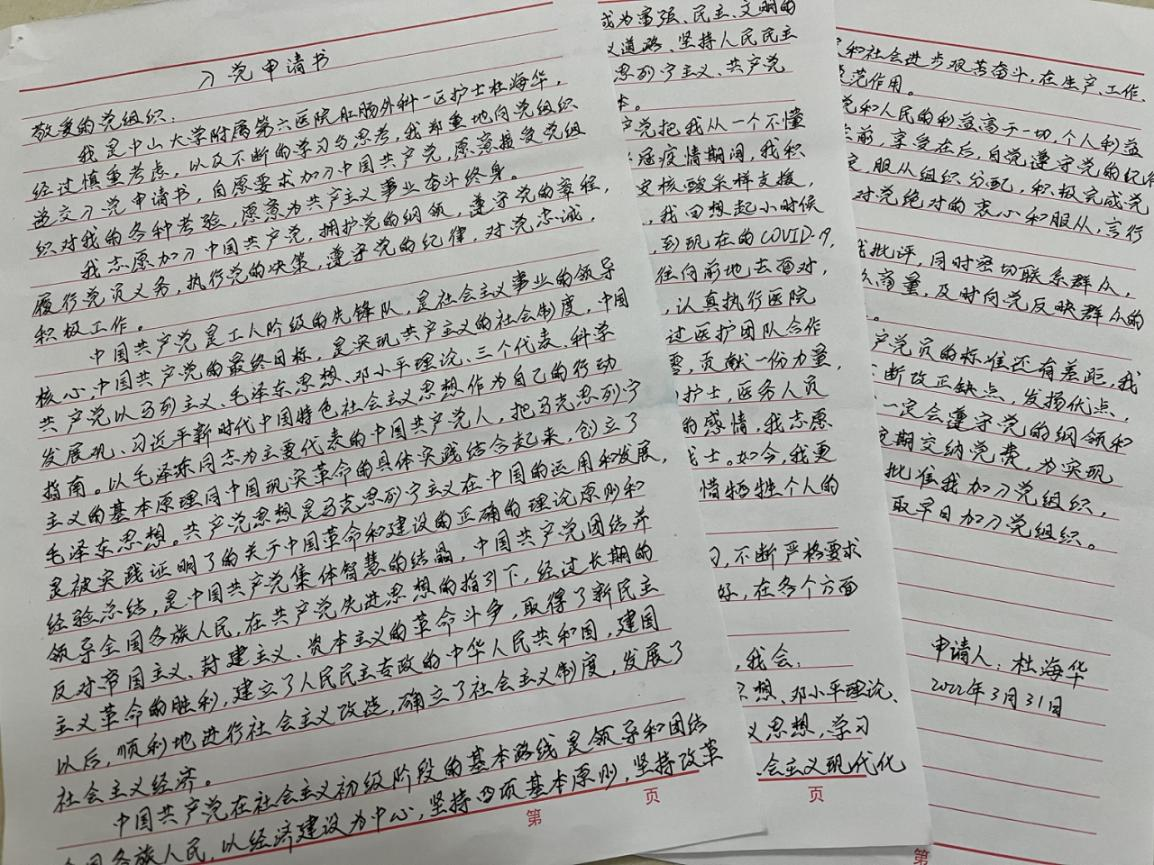 入党申请书
敬爱的党组织：
我是中山大学附属第六医院肛肠外科一区护士杜海华，
经过慎重考虑，以及不断的学习与思考，我郑重地向党组织
递交入党申请书，自愿要求加入中国共产党，愿意接受党组
织对我的各种考验，愿意为共产主义事业奋斗终身。
我志愿加入中国共产党，拥护党的纲领，遵守党的章程，
履行党员义务，执行党的决策，遵守党的纪律，对党忠诚，
积极工作。
中国共产党是工人阶级的先锋队，是社会主义事业的领导
核心，中国共产党的最终目标，是实现共产主义的社会制度，中国
共产党以马列主义、毛泽东思想、邓小平理论、三个代表、科学
发展观、习近平新时代中国特色社会主义思想作为自己的行动
指南。以毛泽东同志为主要代表的中国共产党人，把马克思列宁
主义的基本原理同中国现实革命的具体实践结合起来，创立了
毛泽东思想。共产党思想是马克思列宁主义在中国的运用和发展，
是被实践证明了的关于中国革命和建设的正确的理论原则和
经验总结，是中国共产党集体智慧的结晶，中国共产党团结并
领导全国各族人民，在共产党先进思想的指引下，经过长期的
反对帝国主义、封建主义、资本主义的革命斗争，取得了新民主
主义革命的胜利，建立了人民民主专政的中华人民共和国，建国
以后，顺利地进行社会主义改造，确立了社会主义制度，发展了
社会主义经济。
中国共产党在社会主义初级阶段的基本路线是领导和团结
全国各族人民，以经济建设为中心，坚持四项基本原则，坚持改革
第 页
成为富强、民主、文明的
义道路、坚持人民民主
思列宁主义、共产党
本。
产党把我从一个不懂
冠疫情期间，我积
核酸采样支援，
，我回想起小时候
，到现在的COVID-19，
往向前地去面对，
，认真执行医院
过医护团队合作
，贡献一份力量，
护士，医务人员
的感情，我志愿
战士。如今，我更
惜牺牲个人的
习，不断严格要求
好，在各个方面
，我会：
思想、邓小平理论、
义思想，学习
社会主义现代化
页
和社会进步艰苦奋斗，在生产、工作、
模范作用。
党和人民的利益高于一切，个人利益
在前，享受在后，自觉遵守党的纪律
，服从组织分配，积极完成党
对党绝对的忠心和服从，言行
我批评，同时密切联系群众，
众商量，及时向党反映群众的
。
产党员的标准还有差距，我
不断改正缺点，发扬优点，
一定会遵守党的纲领和
定期交纳党费，为实现
批准我加入党组织，
取早日加入党组织。
申请人：杜海华
2022年3月31日
第